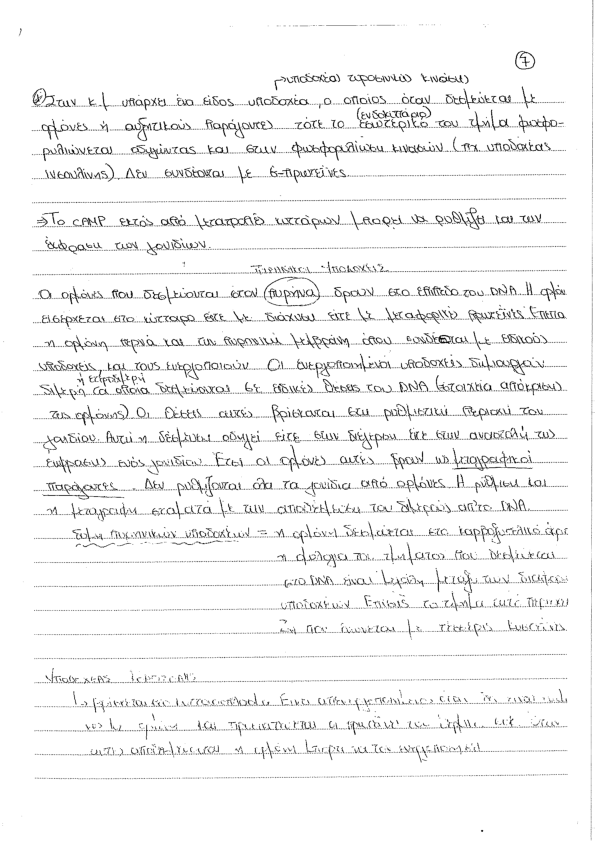 7
→υποδοχέας τυροσινικής κινάσης
Στην κ.μ υπάρχει ένα είδος υποδοχέα, ο οποίος όταν δεσμεύεται με
ορμόνες ή αυξητικούς παράγοντες τότε το εσωτερικό (ενδοκυττάριο) του τμήμα φωσφο-
ρυλιώνεται οδηγώντας και στην φωσφορυλίωση κινασών (πχ υποδοχέας
ινσουλίνης). Δεν συνδέονται με G-πρωτεϊνες.
⇒ Το cAMP εκτός από κυττάρων μπορεί να ρυθμίζει και την
έκφραση των γονιδίων.
Πυρηνικοί Υποδοχείς
Οι ορμόνες που δεσμεύονται στον πυρήνα δρουν στο επίπεδο του DNA. Η ορμόνη
εισέρχεται στο κύτταρο είτε με διάχυση είτε με μεταφορικές πρωτεϊνες. Έπειτα
η ορμόνη περνά και την πυρηνική μεμβράνη όπου συνδέεται με ειδικούς
υποδοχείς και τους ενεργοποιούν. Οι ενεργοποιημένοι υποδοχείς δημιουργούν
διμερή ή ετεροδιμερή τα οποία δεσμεύονται σε ειδικές θέσεις του DNA (στοιχεία απόκρισης
της ορμόνης). Οι θέσεις αυτές βρίσκονται στη ρυθμιστική περιοχή του
γονιδίου. Αυτή η δέσμευση οδηγεί είτε στην διέγερση είτε στην αναστολή της
έκφρασης ενός γονιδίου. Έτσι οι ορμόνες αυτές δρουν ως μεταγραφικοί
παράγοντες. Δεν ρυθμίζονται όλα τα γονίδια από ορμόνες. Η ρύθμιση και
η μεταγραφή σταματά με την αποδέσμευση του διμερούς από το DNA.
Δομή πυρηνικών υποδοχέων = η ορμόνη δεσμεύεται στο καρβοξυτελικό άκρο
η ομολογία του τμήματος που δεσμεύεται
στο DNA είναι μεγάλη μεταξύ των διαφόρων
υποδοχέων. Επίσης το τμήμα αυτό περιέχει
Zn που ενώνεται με τέσσερις κυστεΐνες
Υποδοχέας
βρίσκεται στο κυτταρόπλασμα. Είναι απενεργοποιημένος
και οι πρωτεΐνες
αυτές η ορμόνη μπορεί να τον ενεργοποιήσει